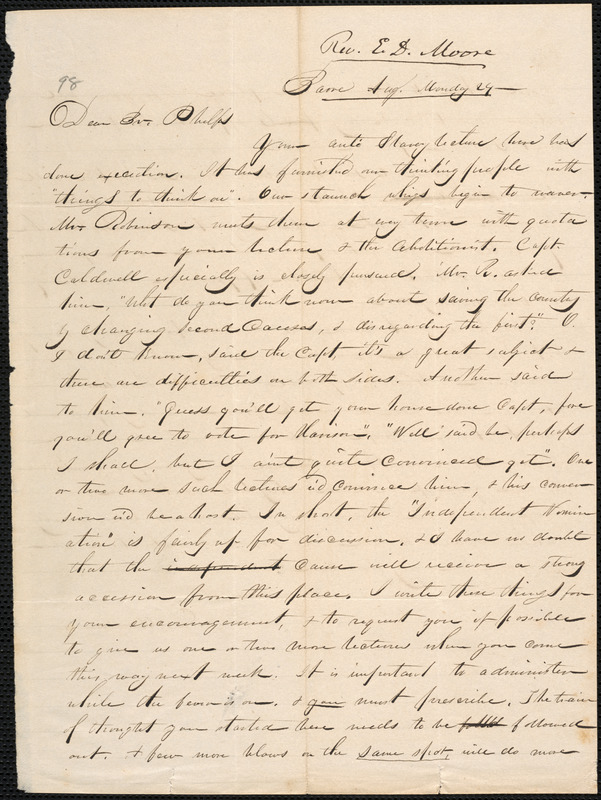 Rev. E. D. Moore
98
Barre Aug. Monday 24
Dear Br. Phelps
Your anti Slavery lecture here has
done execution. It has furnished our thinking people with
"things to think on". Our staunch whigs begin to waver.
Mr. Robinson meets them at every turn with quota
tions from your lecture & the Abolitionist. Capt.
Caldwell especially is closely pursued. Mr. R. asked
him, "What do you think now about saving the country
by changing second Causes, & disregarding the first?" O.
I don't know, said the Capt it's a great subject &
there are difficulties on both sides. Another said
to him. "Guess you'll get your house done Capt, fore
you'll gree to vote for Harison". "Well" said he, perhaps
I shall, but I aint quite convinced yet". One
or two more such lectures w'd convince him, & his conver
sion w'd be a host. In short, the "Independent Nomin
ation" is fairly up for discussion, & I have no doubt
that the independent cause will receive a strong
accession from this place. I write these things for
your encouragement, & to request you if possible
to give us one or two more lectures when you come
this way next week. It is important to administer
while the fever is on. & you must prescribe. The train
of thought you started here needs to be followed
out. A few more blows on the same spot, will do more